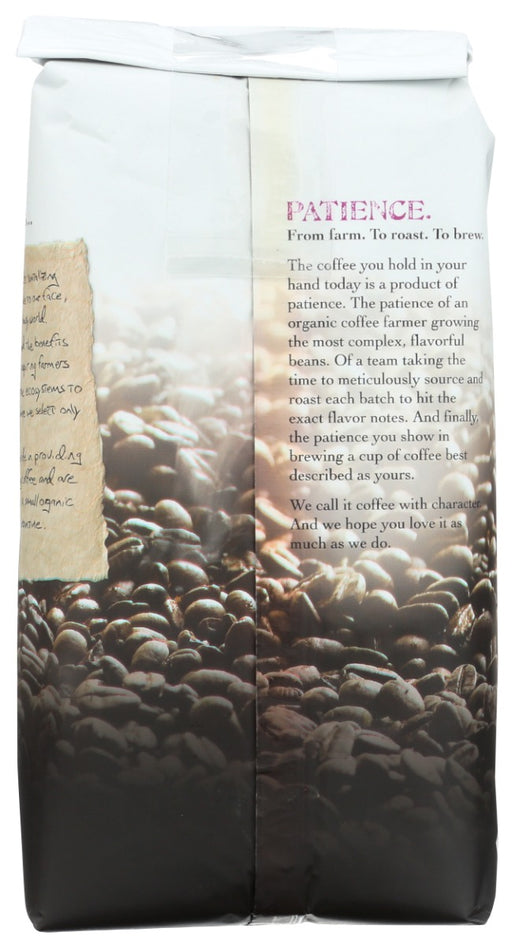 PATIENCE.
From farm. To roast. To brew.
The coffee you hold in your
hand today is a product of
patience. The patience of an
organic coffee farmer growing
the most complex, flavorful
beans. Of a team taking the
time to meticulously source and
roast each batch to hit the
exact flavor notes. And finally,
the patience you show in
brewing a cup of coffee best
described as yours.
We call it coffee with character.
And we hope you love it as
much as we do.
face,
world
the benefits
farmers
ecosystems to
we select only
providing
and are
small organic